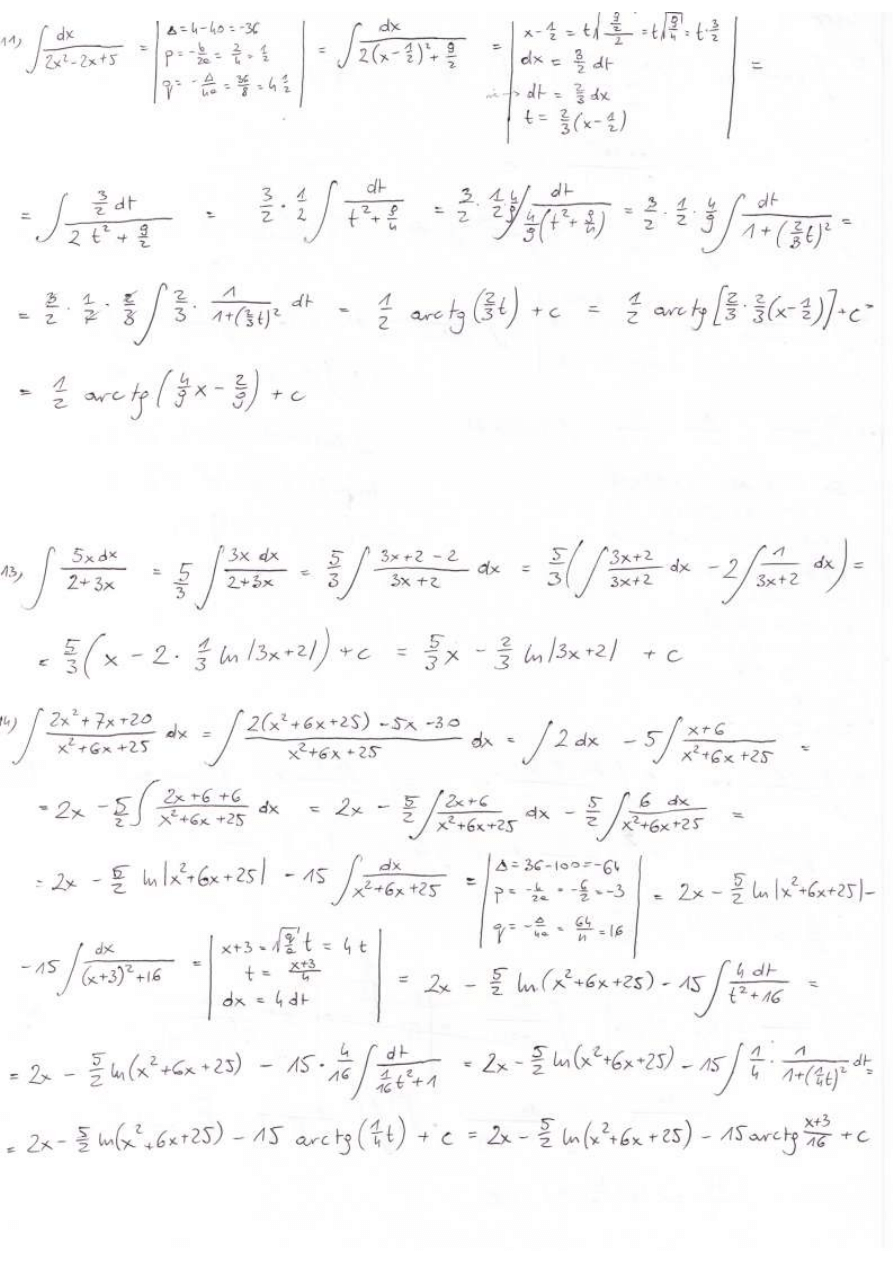 11) ∫ dx/(2x²-2x+5) = | Δ=4-40=-36 ; p=-b/2a = 2/4 = 1/2 ; q=-Δ/4a = 36/8 = 4 1/2 | = ∫ dx/(2(x-1/2)²+9/2) = | x-1/2 = t√((9/2)/2) = t√(9/4) = t·3/2 ; dx = 3/2 dt ; → dt = 2/3 dx ; t = 2/3(x-1/2) | =
= ∫ (3/2 dt)/(2 t² + 9/2) = 3/2 · 1/2 ∫ dt/(t²+9/4) = 3/2 · 1/2 · 4/9 ∫ dt/(4/9(t²+9/4)) = 3/2 · 1/2 · 4/9 ∫ dt/(1+(2/3 t)²) =
= 3/2 · 1/2 · 2/3 ∫ 2/3 · 1/(1+(2/3 t)²) dt = 1/2 arctg(2/3 t) + c = 1/2 arctg[2/3 · 2/3(x-1/2)] + c =
= 1/2 arctg(4/9 x - 2/9) + c
13) ∫ 5x dx/(2+3x) = 5/3 ∫ 3x dx/(2+3x) = 5/3 ∫ (3x+2-2)/(3x+2) dx = 5/3(∫ (3x+2)/(3x+2) dx - 2∫ 1/(3x+2) dx) =
= 5/3(x - 2 · 1/3 ln|3x+2|) + c = 5/3 x - 2/3 ln|3x+2| + c
14) ∫ (2x²+7x+20)/(x²+6x+25) dx = ∫ (2(x²+6x+25) -5x -30)/(x²+6x+25) dx = ∫ 2 dx - 5∫ (x+6)/(x²+6x+25) =
= 2x - 5/2 ∫ (2x+6+6)/(x²+6x+25) dx = 2x - 5/2 ∫ (2x+6)/(x²+6x+25) dx - 5/2 ∫ 6 dx/(x²+6x+25) =
= 2x - 5/2 ln|x²+6x+25| - 15 ∫ dx/(x²+6x+25) = | Δ=36-100=-64 ; p=-b/2a = -6/2 = -3 ; q=-Δ/4a = 64/4 = 16 | = 2x - 5/2 ln|x²+6x+25| -
-15 ∫ dx/((x+3)²+16) = | x+3 = √(q/a) t = 4t ; t = (x+3)/4 ; dx = 4 dt | = 2x - 5/2 ln(x²+6x+25) - 15 ∫ 4 dt/(t²+16) =
= 2x - 5/2 ln(x²+6x+25) - 15 · 4/16 ∫ dt/(1/16 t²+1) = 2x - 5/2 ln(x²+6x+25) - 15 ∫ 1/4 · 1/(1+(1/4 t)²) dt =
= 2x - 5/2 ln(x²+6x+25) - 15 arctg(1/4 t) + c = 2x - 5/2 ln(x²+6x+25) - 15 arctg (x+3)/16 + c